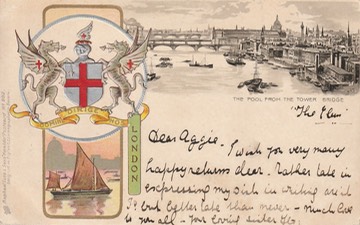 THE POOL FROM THE TOWER BRIDGE.
"The Elms"
DOMINE DIRIGE NOS
LONDON
Dear Aggie. I wish you very many
happy returns dear. Rather late in
expressing my wish in writing isn't
it? but better late than never - much love
to you all - your loving sister